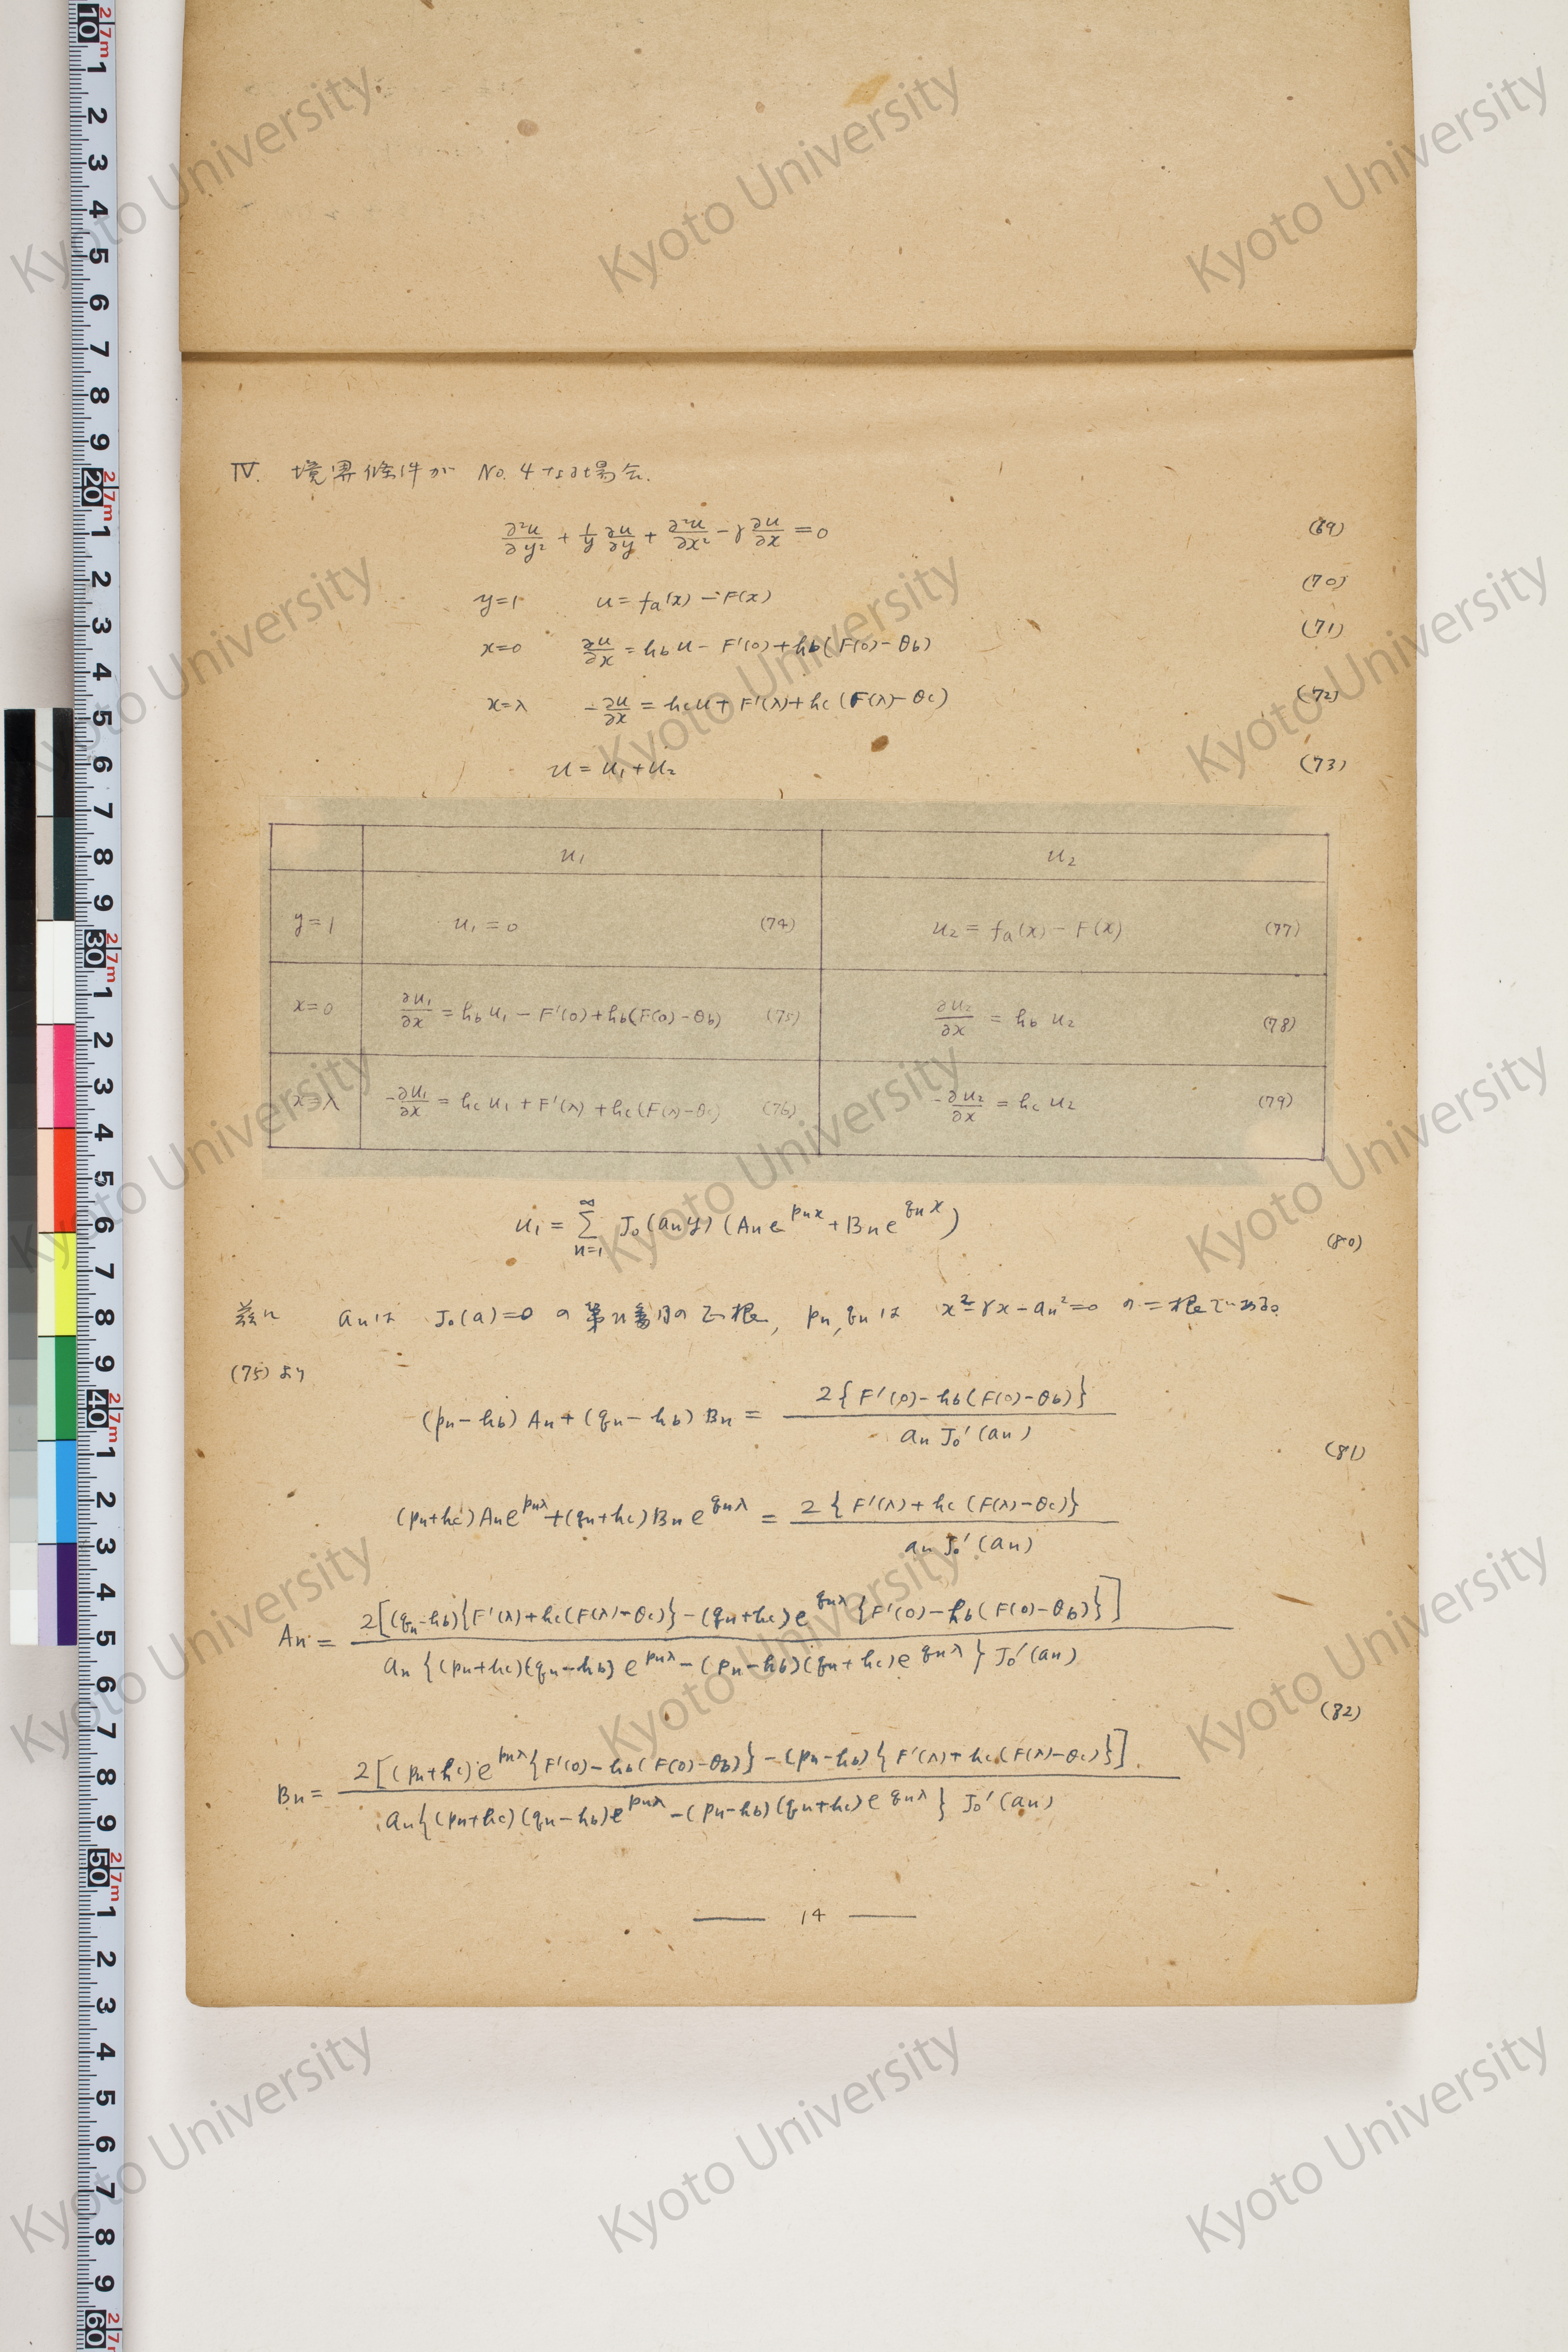 IV. 境界條件が No. 4 なる場合.
∂²u/∂y² + 1/y ∂u/∂y + ∂²u/∂x² − γ ∂u/∂x = 0 (69)
y=1 u = fa(x) − F(x) (70)
x=0 ∂u/∂x = hb u − F'(0) + hb(F(0) − θb) (71)
x=λ −∂u/∂x = hc u + F'(λ) + hc(F(λ) − θc) (72)
u = u₁ + u₂ (73)
u₁ u₂
y=1 u₁ = 0 (74) u₂ = fa(x) − F(x) (77)
x=0 ∂u₁/∂x = hb u₁ − F'(0) + hb(F(0) − θb) (75) ∂u₂/∂x = hb u₂ (78)
x=λ −∂u₁/∂x = hc u₁ + F'(λ) + hc(F(λ) − θc) (76) −∂u₂/∂x = hc u₂ (79)
u₁ = Σ_{n=1}^{∞} J₀(an y)(An e^{pn x} + Bn e^{qn x}) (80)
茲に an は J₀(a)=0 の第n番目の正根, pn, qn は x²−γx−an²=0 の二根である。
(75) より
(pn − hb) An + (qn − hb) Bn = 2{F'(0) − hb(F(0) − θb)} / an J₀'(an)
(81)
(pn+hc) An e^{pnλ} + (qn+hc) Bn e^{qnλ} = 2{F'(λ) + hc(F(λ) − θc)} / an J₀'(an)
An = 2[(qn−hb){F'(λ)+hc(F(λ)−θc)} − (qn+hc)e^{qnλ}{F'(0)−hb(F(0)−θb)}] / an{(pn+hc)(qn−hb)e^{pnλ} − (pn−hb)(qn+hc)e^{qnλ}} J₀'(an)
(82)
Bn = 2[(pn+hc)e^{pnλ}{F'(0)−hb(F(0)−θb)} − (pn−hb){F'(λ)+hc(F(λ)−θc)}] / an{(pn+hc)(qn−hb)e^{pnλ} − (pn−hb)(qn+hc)e^{qnλ}} J₀'(an)
— 14 —
Kyoto University